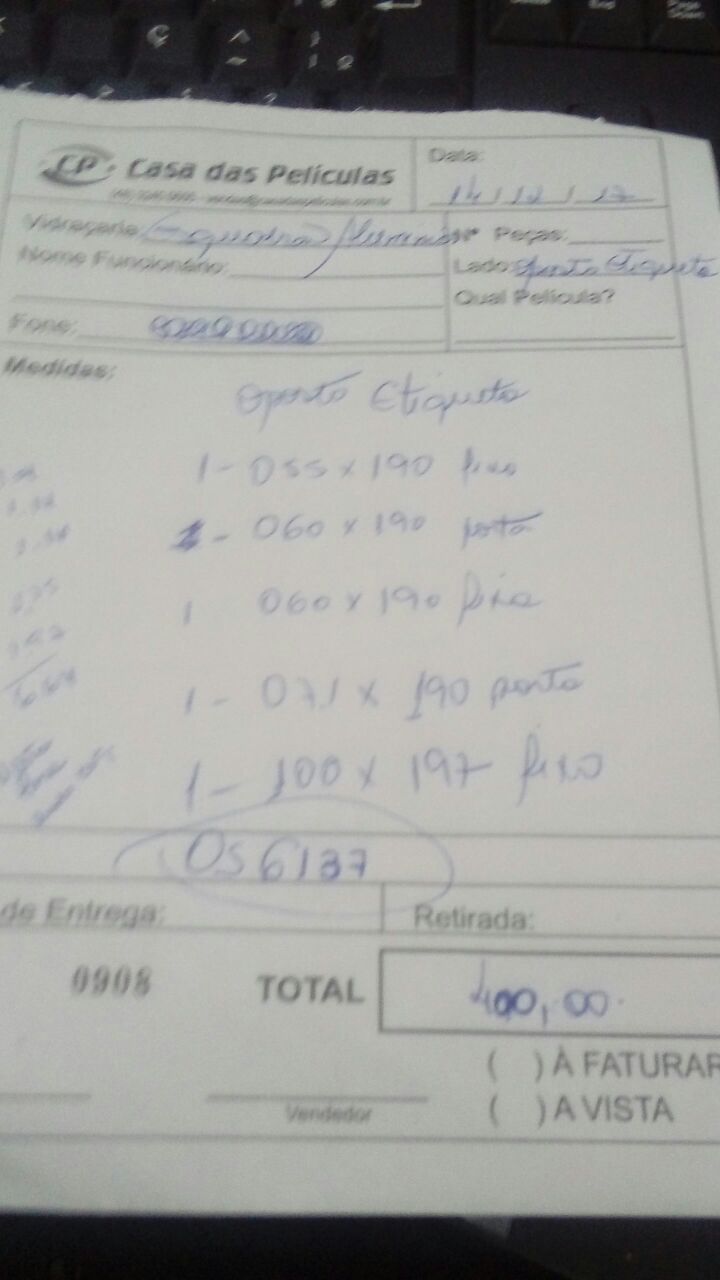 CP Casa das Películas
Data:
14/12/17
Vidraçaria: Esquadra
Nº Peças:
Nome Funcionário:
Lado: oposto Etiqueta
Qual Película?
Fone:
Medidas:
oposto Etiqueta
1- 055 x 190 fixo
1- 060 x 190 porta
1 060 x 190 fixa
1- 071 x 190 porta
1- 100 x 197 fixo
OS 6137
de Entrega:
Retirada:
0908 TOTAL 400,00
( ) À FATURAR
Vendedor
( ) A VISTA